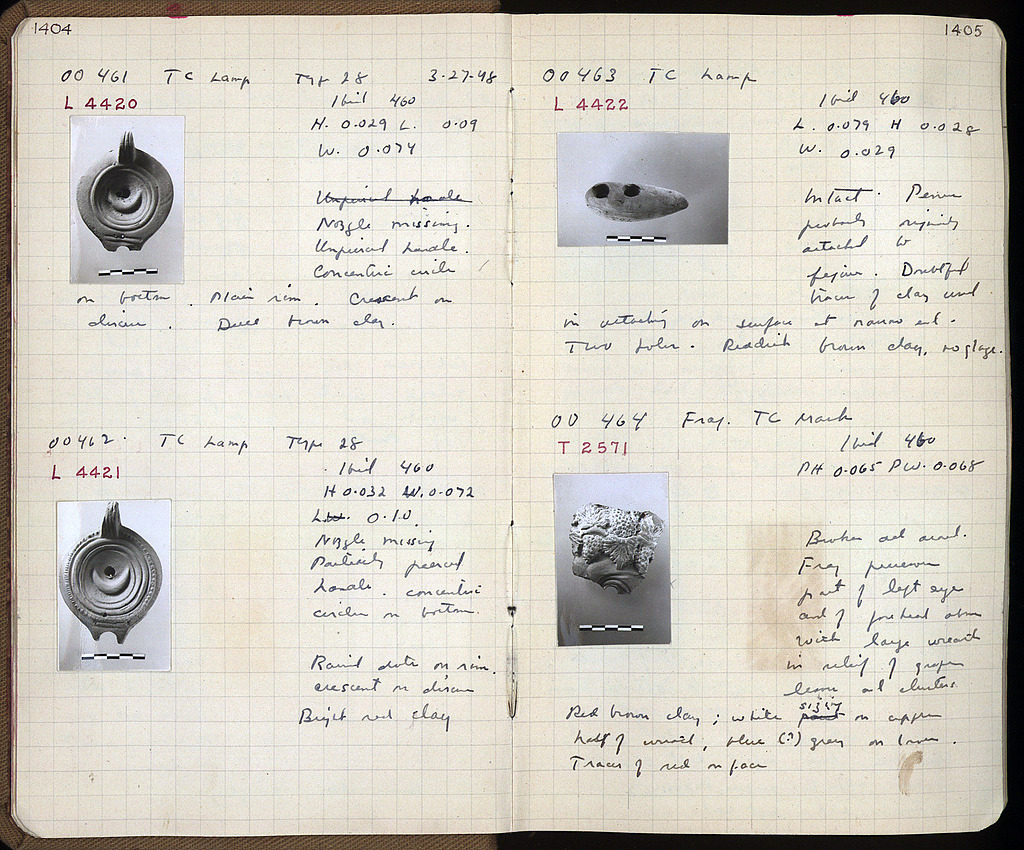 1404
OO 461 TC Lamp Type 28 3-27-48
L 4420
Ibid 460
H. 0.029 L. 0.09
W. 0.074
Unpierced handle
Nozzle missing.
Unpierced handle.
Concentric circle
on bottom. Plain rim. Crescent on
discus. Dull brown clay.
OO 462. TC Lamp Type 28
L 4421
Ibid 460
H 0.032 W. 0.072
L. 0.10.
Nozzle missing
Partially pierced
handle. concentric
circles on bottom.
Raised dots on rim.
crescent on discus
Bright red clay
1405
OO 463 TC Lamp
L 4422
Ibid 460
L. 0.079 H 0.028
W. 0.029
Intact.
probably originally
attached to
figure. Doubtful
traces of clay used
in attaching on surface at narrow end.
Two holes. Reddish brown clay, no glaze.
OO 464 Frag. TC Mask
T 2571
Ibid 460
PH 0.065 PW. 0.068
Broken all around.
Frag preserves
part of left eye
and of forehead above
with large wreath
in relief of grape
leaves and clusters.
Red brown clay; white sizing paint on upper
half of wreath, blue (?) gray on lower.
Traces of red on face